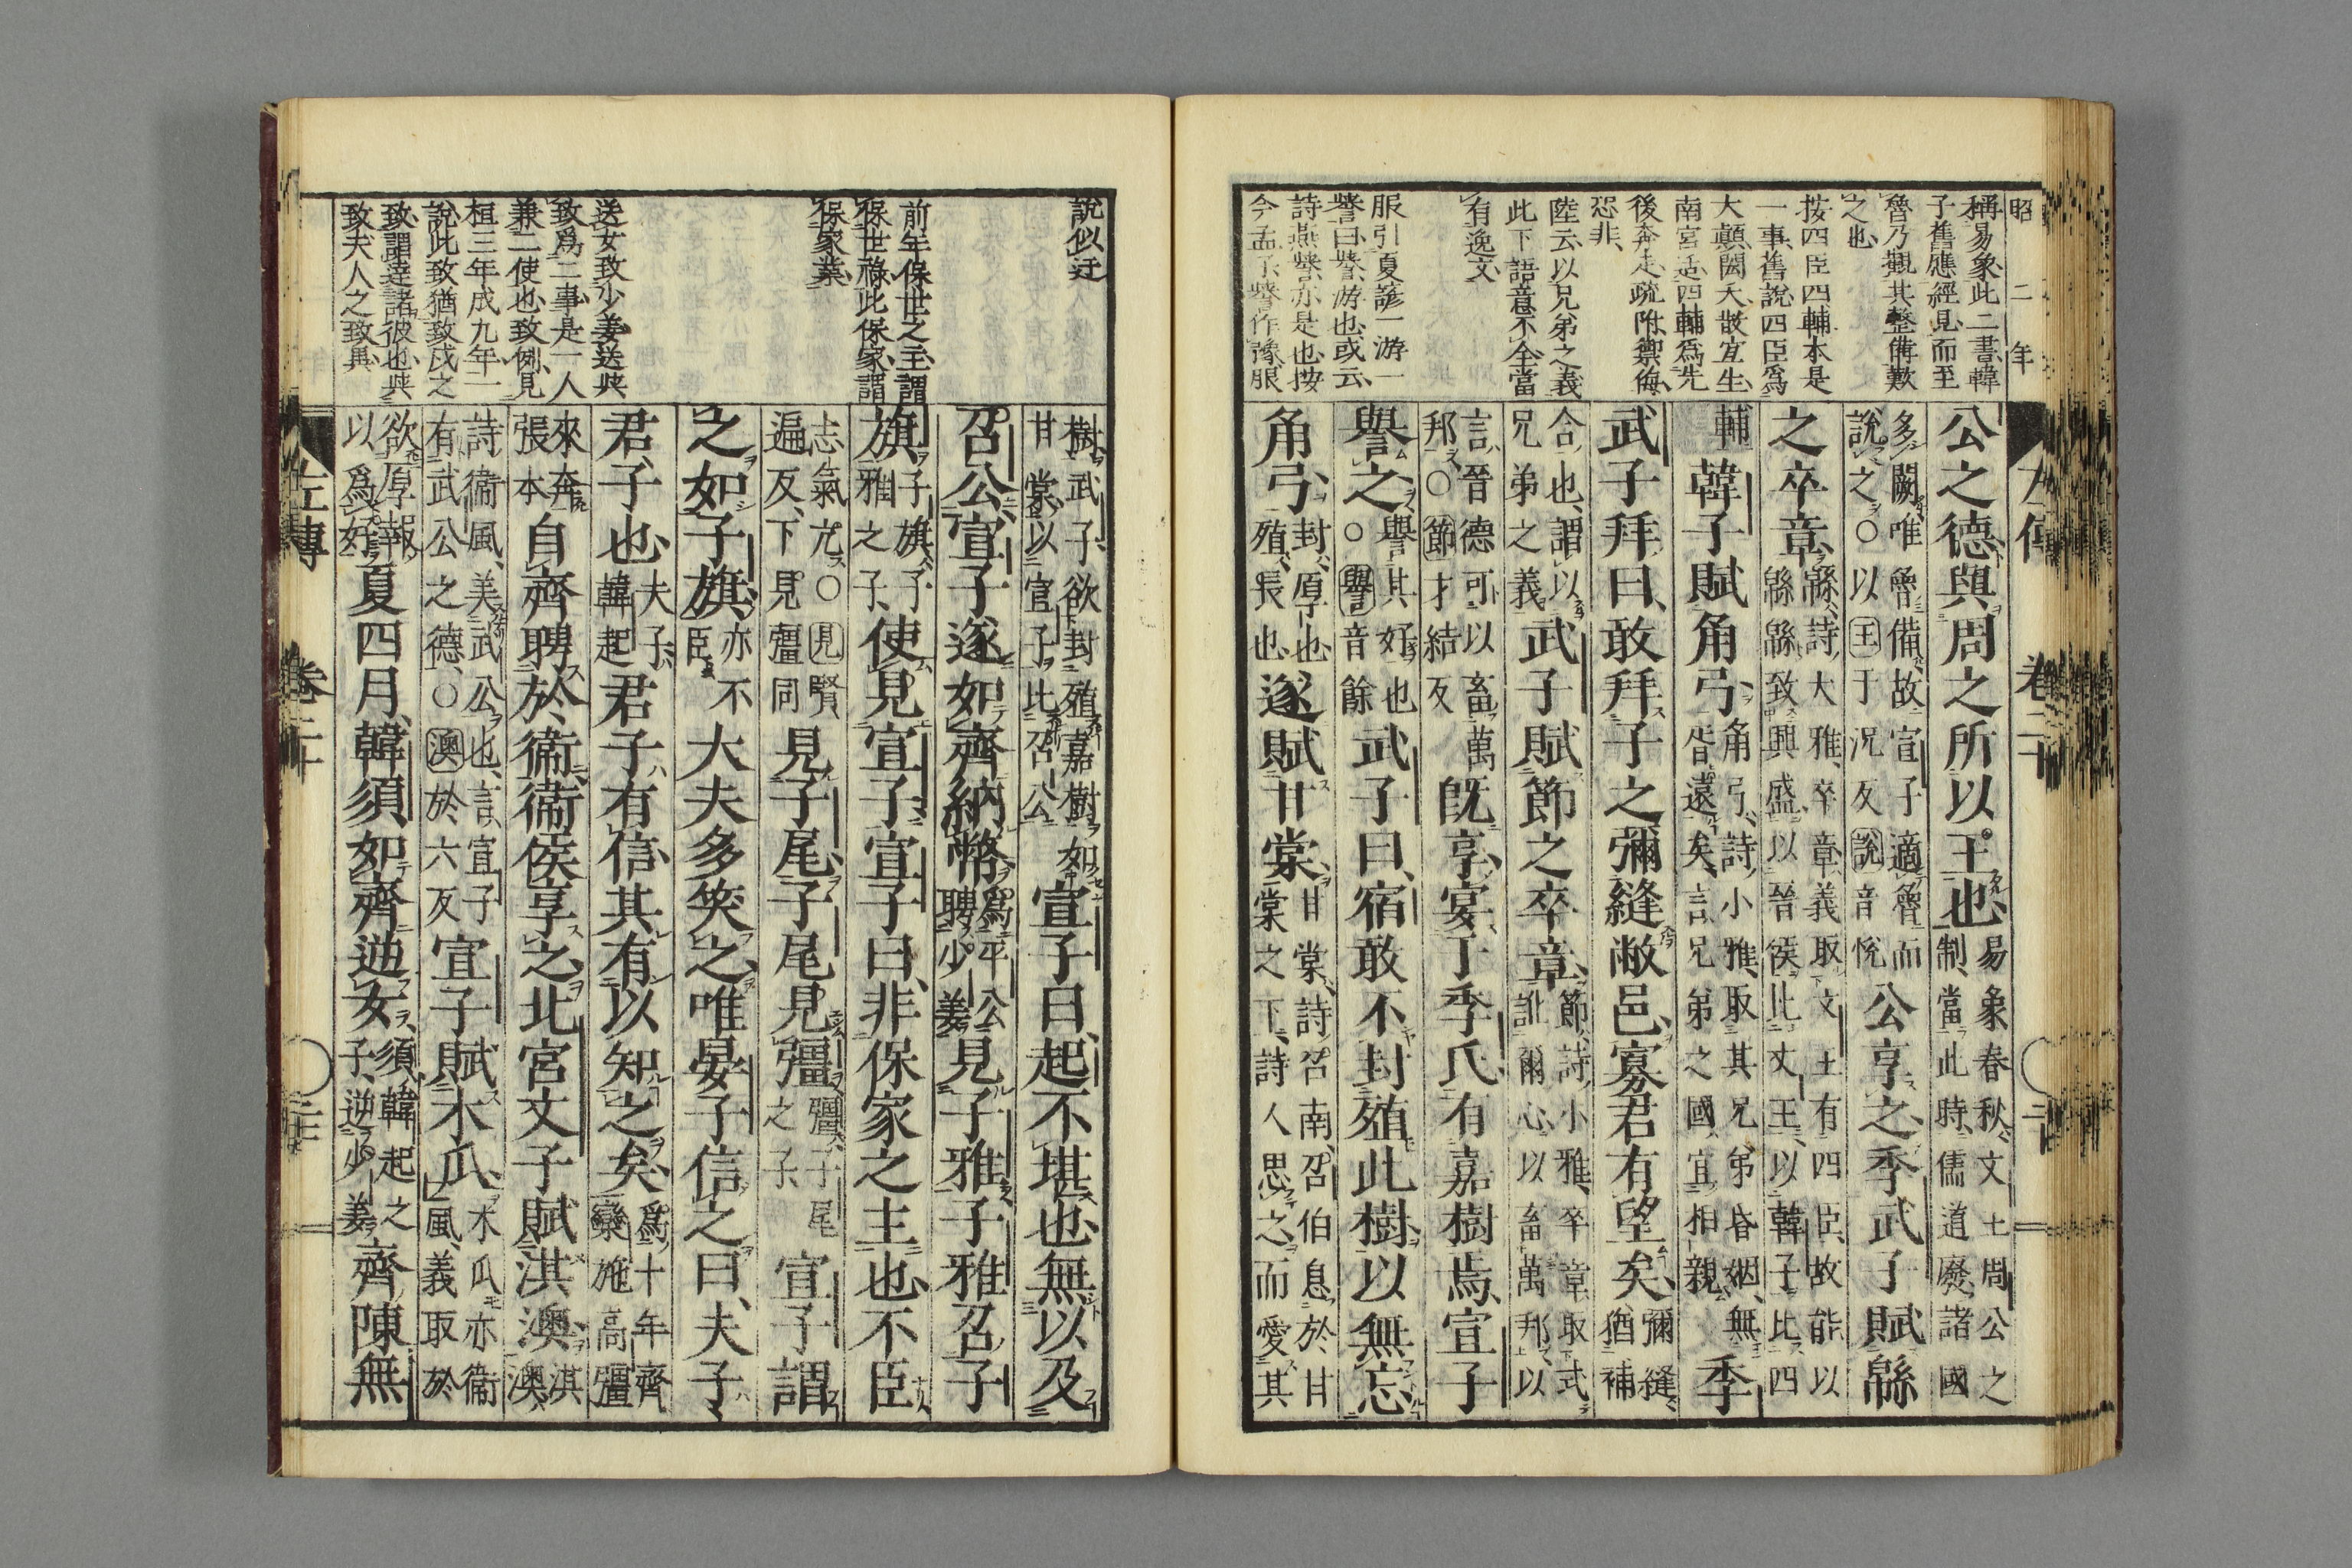 昭二年
稱易象此二書韓
子舊應經見而至
魯乃觀其整備歎
之也
按四臣四輔本是
一事舊說四臣爲
大顚閎夭散宜生
南宮适四輔爲先
後奔走疏附禦侮
恐非
陸云以兄弟之義
此下語意不全當
有逸文
服引夏諺一游一
譽曰譽游也或云
詩燕譽亦是也按
今孟子譽作豫服
公之德與周之所以王也易象春秋文王周公之
制當此時儒道廢諸國
多闕唯魯備故宣子適魯而
說之○以王于況反說音悅公享之季武子賦緜
之卒章緜詩大雅卒章義取文王有四臣故能以
緜緜致興盛以晉侯比文王以韓子比四
輔韓子賦角弓角弓詩小雅取其兄弟昏姻無
胥遠矣言兄弟之國宜相親季
武子拜曰敢拜子之彌縫敝邑寡君有望矣彌縫
猶補
合也謂以
兄弟之義武子賦節之卒章節詩小雅卒章取式
訛爾心以畜萬邦以
言晉德可以畜萬
邦○節才結反旣享宴于季氏有嘉樹焉宣子
譽之譽其好也
○譽音餘武子曰宿敢不封殖此樹以無忘
角弓封厚也
殖長也遂賦甘棠甘棠詩召南召伯息於甘
棠之下詩人思之而愛其
左傳 卷二十
說似迂
前年保世之主謂
保世祿此保家謂
保家業
送女致少姜送與
致爲二事是一人
兼二使也致例見
桓三年成九年一
說此致猶致戌之
致謂達諸彼也與
致夫人之致異
樹武子欲封殖嘉樹如
甘棠以宣子比召公宣子曰起不堪也無以及
召公宣子遂如齊納幣爲平公
聘少姜見子雅子雅召子
旗子旗子
雅之子使見宣子宣子曰非保家之主也不臣
志氣亢○見賢
遍反下見彊同見子尾子尾見彊彊子尾
之子宣子謂
之如子旗亦不
臣大夫多笑之唯晏子信之曰夫子
君子也夫子
韓起君子有信其有以知之矣爲十年齊
欒施高彊
來奔
張本自齊聘於衞衞侯享之北宮文子賦淇澳淇
澳
詩衞風美武公也言宣子
有武公之德○澳於六反宣子賦木瓜木瓜亦衞
風義取於
欲厚報
以爲好夏四月韓須如齊逆女須韓起之
子逆少姜齊陳無
左傳 卷二十